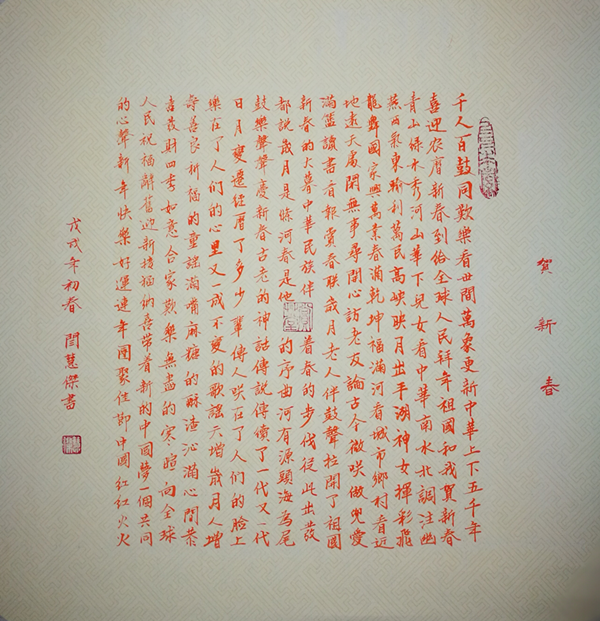 賀新春
千人百鼓同歡樂看世間萬象更新中華上下五千年
喜迎农曆新春到给全球人民拜年祖國和我賀新春
青山绿水秀河山華下兒女看中華南水北調注幽
燕西氣東輸利萬民高峡映月出平湖神女揮彩飛
龍舞國家興萬業春满乾坤福滿河看城市鄉村看近
地遠天處閑無事尋開心訪老友論古今微咲做兜愛
滿篮讀書看報賞春联歲月老人伴鼓聲拉開了祖國
新春的大幕中華民族伴着春的步伐從此出發
都說歲月是條河春是他的序曲河有源頭海為尾
鼓樂聲聲慶新春古老的神話傳說傳續了一代又一代
日月變遷经曆了多少輩傳人咲在了人们的脸上
樂在了人们的心里又一成不變的歌謡天增歲月人增
壽善良祈福的童謡滴着麻糖的酥渣沁滿心間恭
喜發財四季如意合家歡樂無盡的寒暄向全球
人民祝福辭舊迎新接福纳喜带着新的中國夢一個共同
的心聲新年快樂好運連年團聚佳節中國红红火火
戊戌年初春 閆慧傑書